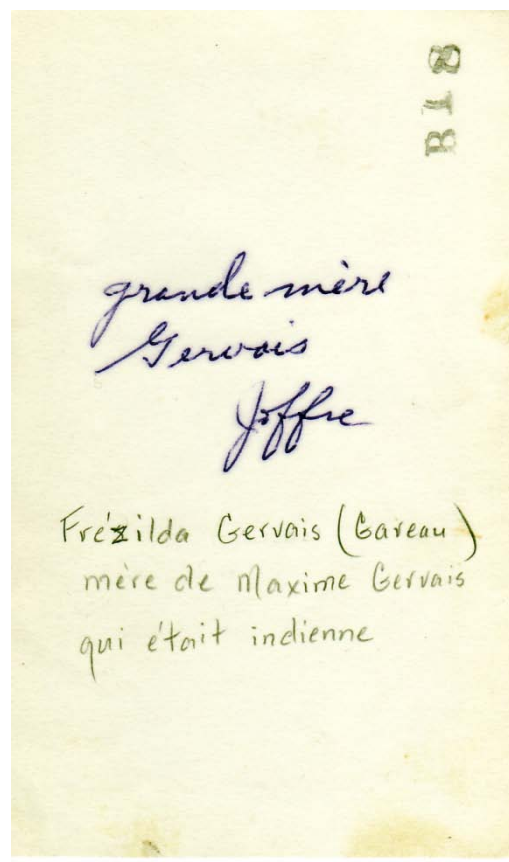 818
grande mère
Gervais
Joffre
Frézilda Gervais (Gareau)
mère de Maxime Gervais
qui était indienne